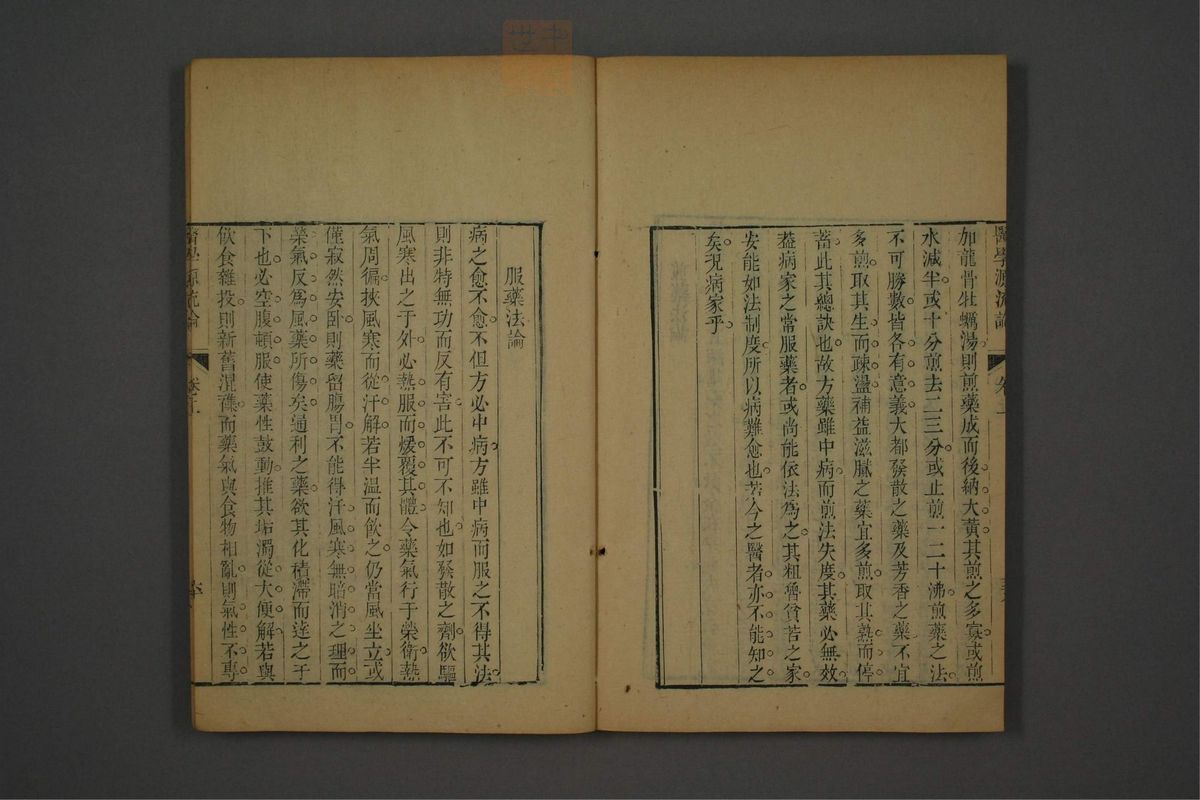 醫學源流論
卷上
如龍骨牡蠣湯則煎藥成而後納大黃其煎之多寡或煎
水減半或十分煎去二三分或止煎一二十沸煎藥之法
不可勝數皆各有意義大都發散之藥及芳香之藥不宜
多煎取其生而疎盪補益滋膩之藥宜多煎取其熟而停
蓄此其總訣也故方藥雖中病而煎法失度其藥必無效
葢病家之常服藥者或尚能依法為之其粗魯貧苦之家
安能如法制度所以病難愈也若今之醫者亦不能知之
矣况病家乎
服藥法論
病之愈不愈不但方必中病方雖中病而服之不得其法
則非特無功而反有害此不可不知也如發散之劑欲驅
風寒出之于外必熱服而煖覆其體令藥氣行于榮衛熱
氣周徧挾風寒而從汗解若半溫而飲之仍當風坐立或
僅寂然安卧則藥留腸胃不能得汗風寒無暗消之理而
藥氣反為風藥所傷矣通利之藥欲其化積滯而達之于
下也必空腹頓服使藥性鼓動推其垢濁從大便解若與
飲食雜投則新舊混雜而藥氣與食物相亂則氣性不專
醫學源流論
卷上